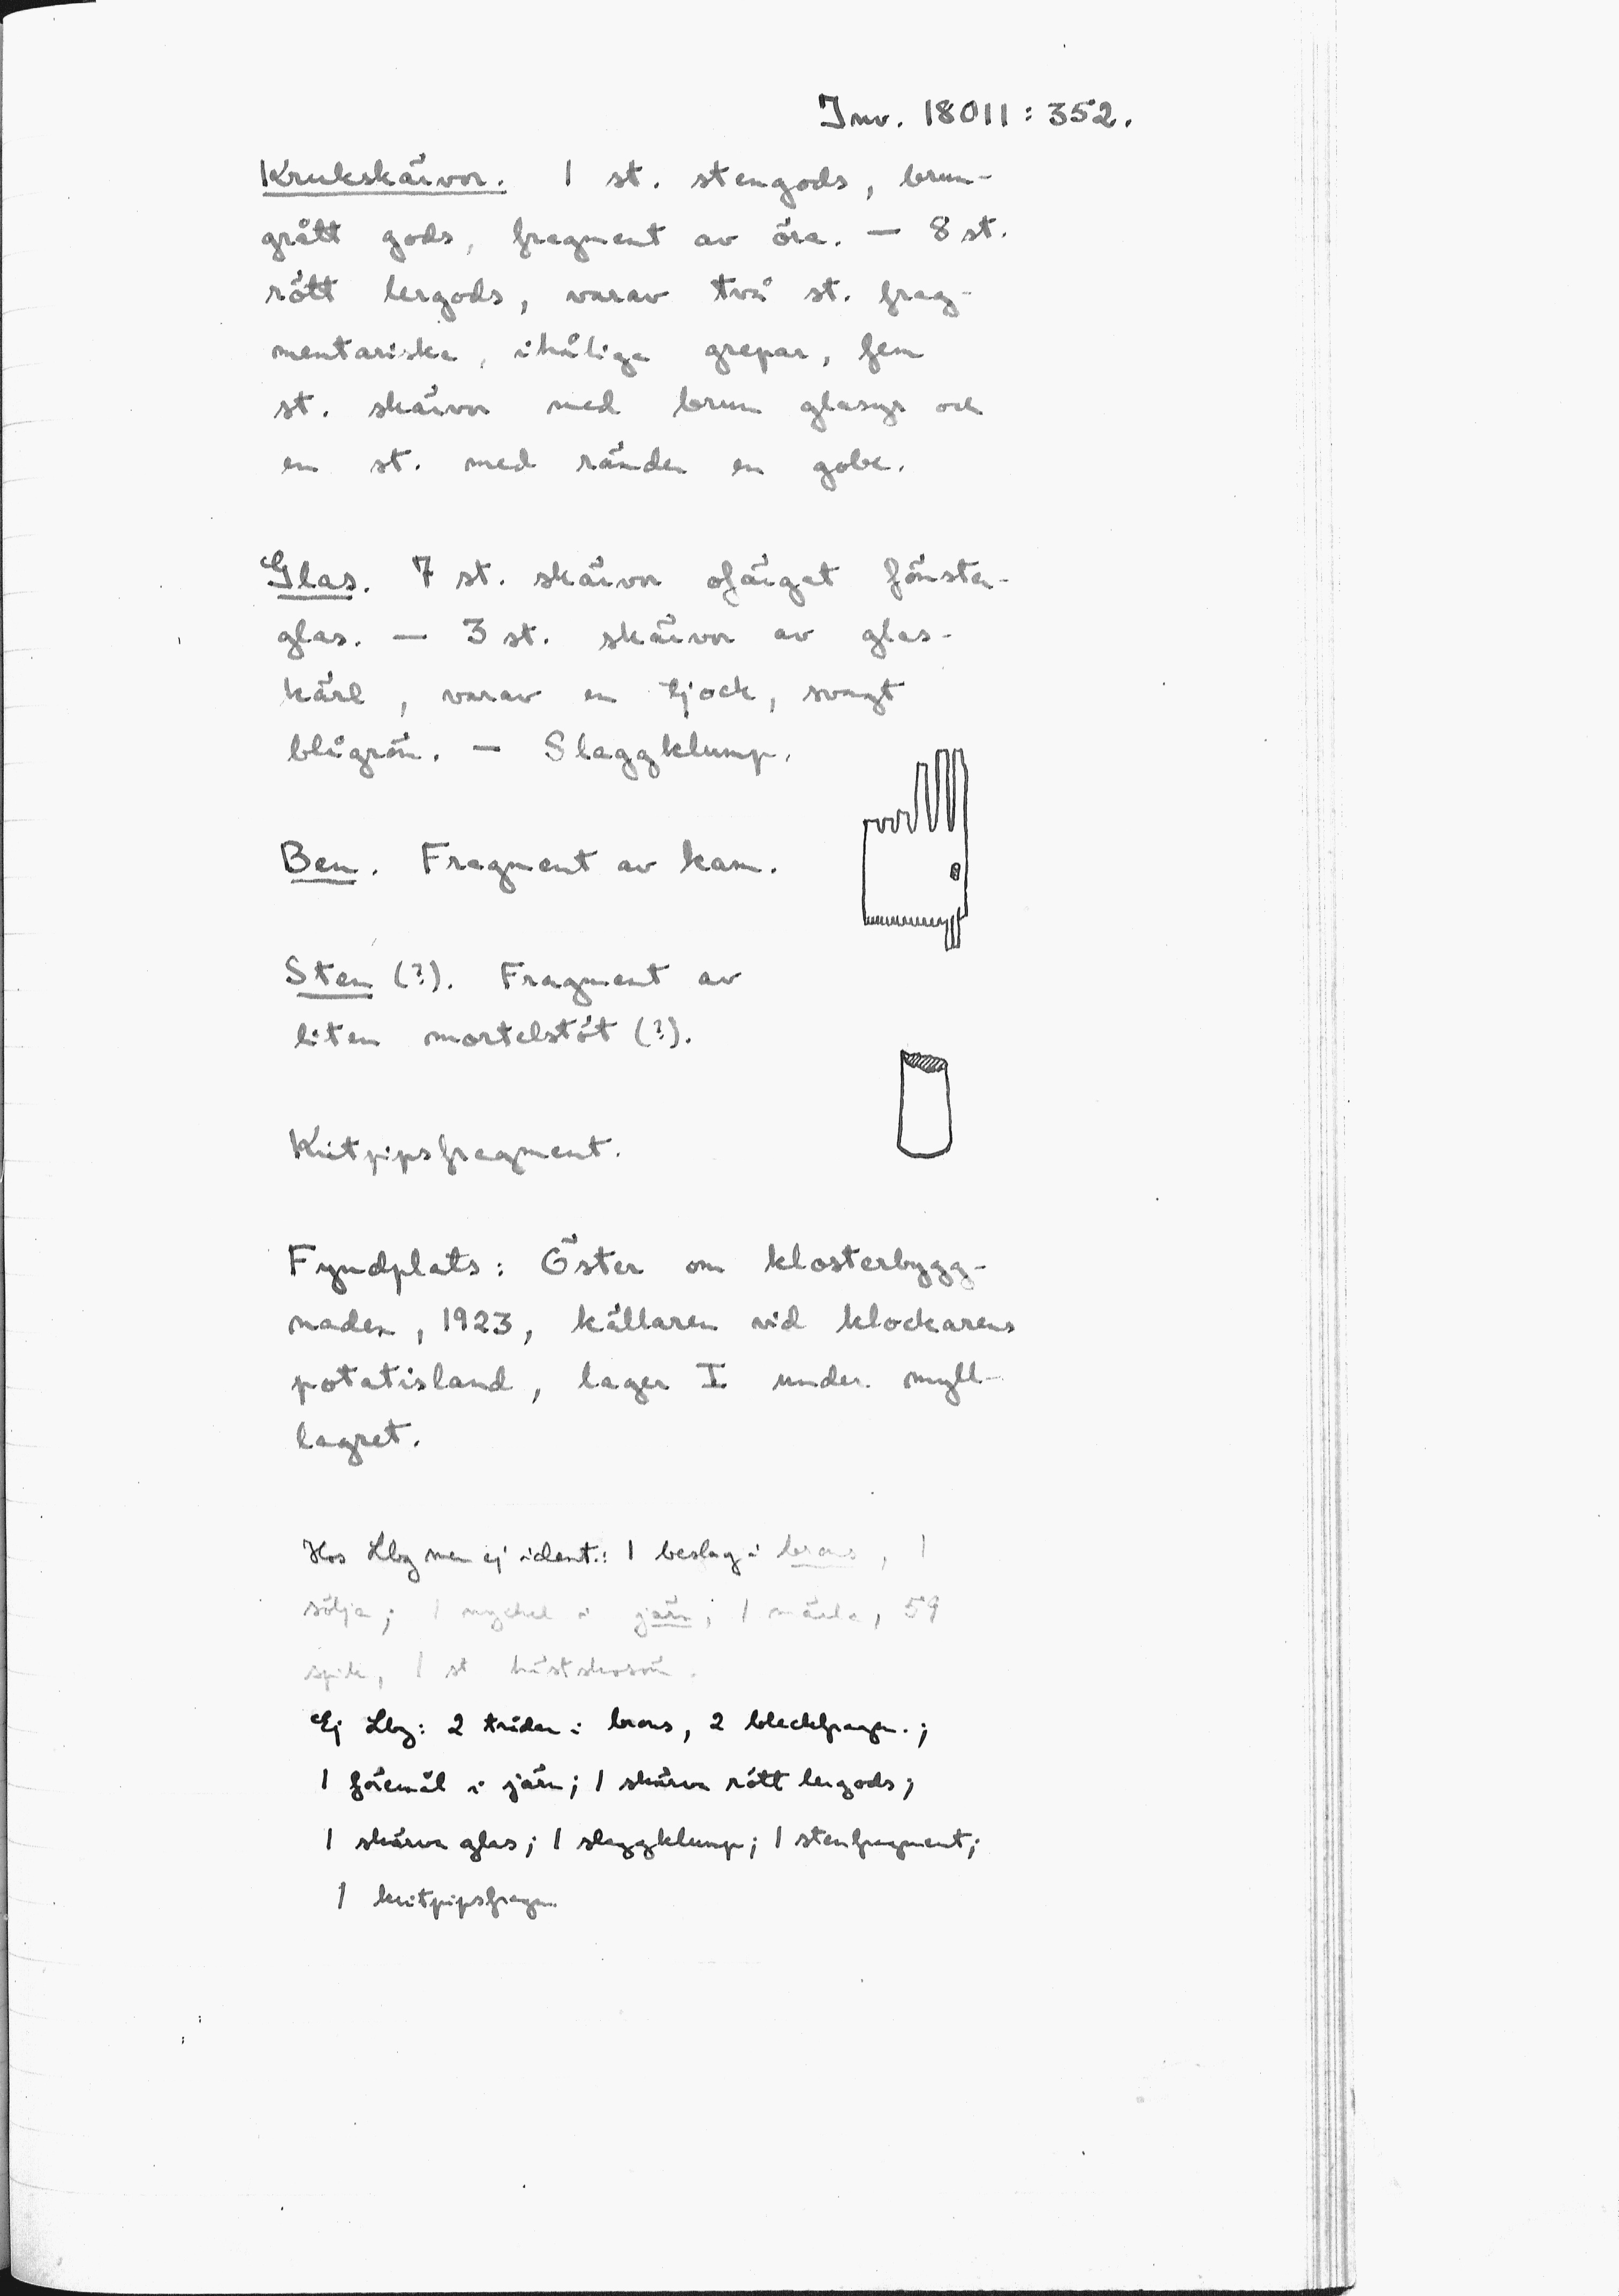 Inv. 18011:352.
Krukskärvor. 1 st. stengods, brun-
grått gods, fragment av öra. — 8 st.
rött lergods, varav två st. frag-
mentariska, ihåliga grepar, fem
st. skärvor med brun glasyr och
en st. med ränder en gobe.
Glas. 7 st. skärvor ofärgat fönster-
glas. — 3 st. skärvor av glas-
kärl, varav en tjock, svagt
blågrön. — Slaggklump.
Ben. Fragment av kam.
Sten (?). Fragment av
liten mortelstöt (?).
Kritpipsfragment.
Fyndplats: Öster om klosterbygg-
naden, 1923, källaren vid klockarens
potatisland, lager I under myll-
lagret.
Hos Lbg men ej ident.: 1 beslag i brons, 1
sölja; 1 nyckel i järn; 1 märla, 59
spik, 1 st hästskosöm.
Ej Lbg: 2 trådar i brons, 2 bleckfragm.;
1 föremål i järn; 1 skärva rött lergods;
1 skärva glas; 1 slaggklump; 1 stenfragment;
1 kritpipsfragm.